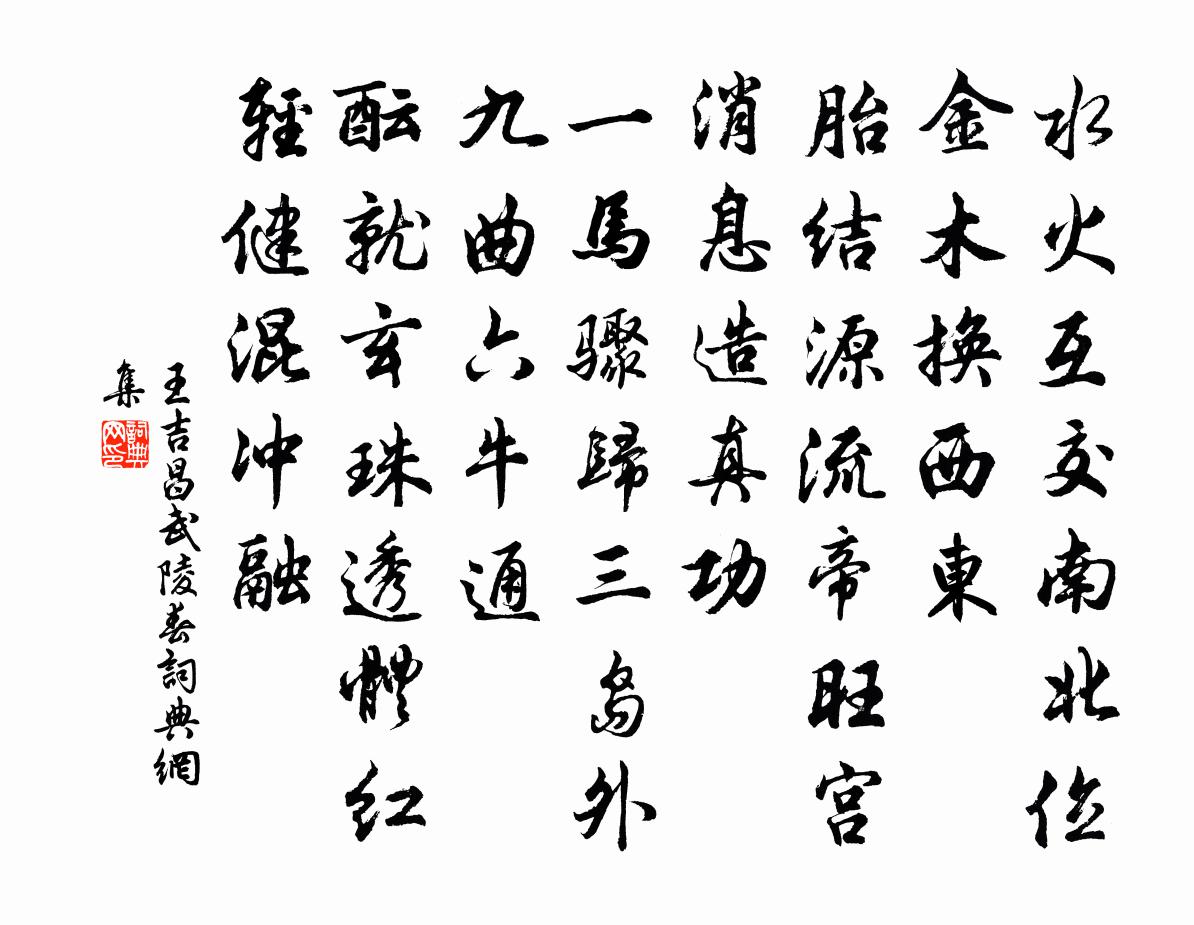 水火互交南北位
金木換西東
胎結源流帝旺宮
消息造真功
一馬驟歸三島外
九曲六牛通
酝就玄珠透體紅
輕健混冲融
王吉昌武陵春詞典網
集
詞典
网印